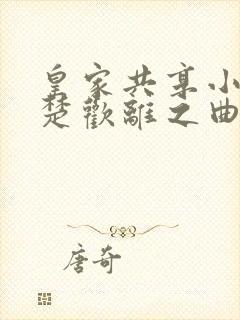 皇家共享小
楚歡離之曲
唐奇